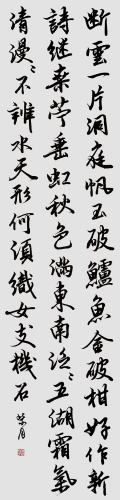 断雲一片洞庭帆玉破鱸魚金破柑好作新
詩継桑苧垂虹秋色滿東南泛〻五湖霜氣
清漫〻不辨水天形何須織女支機石